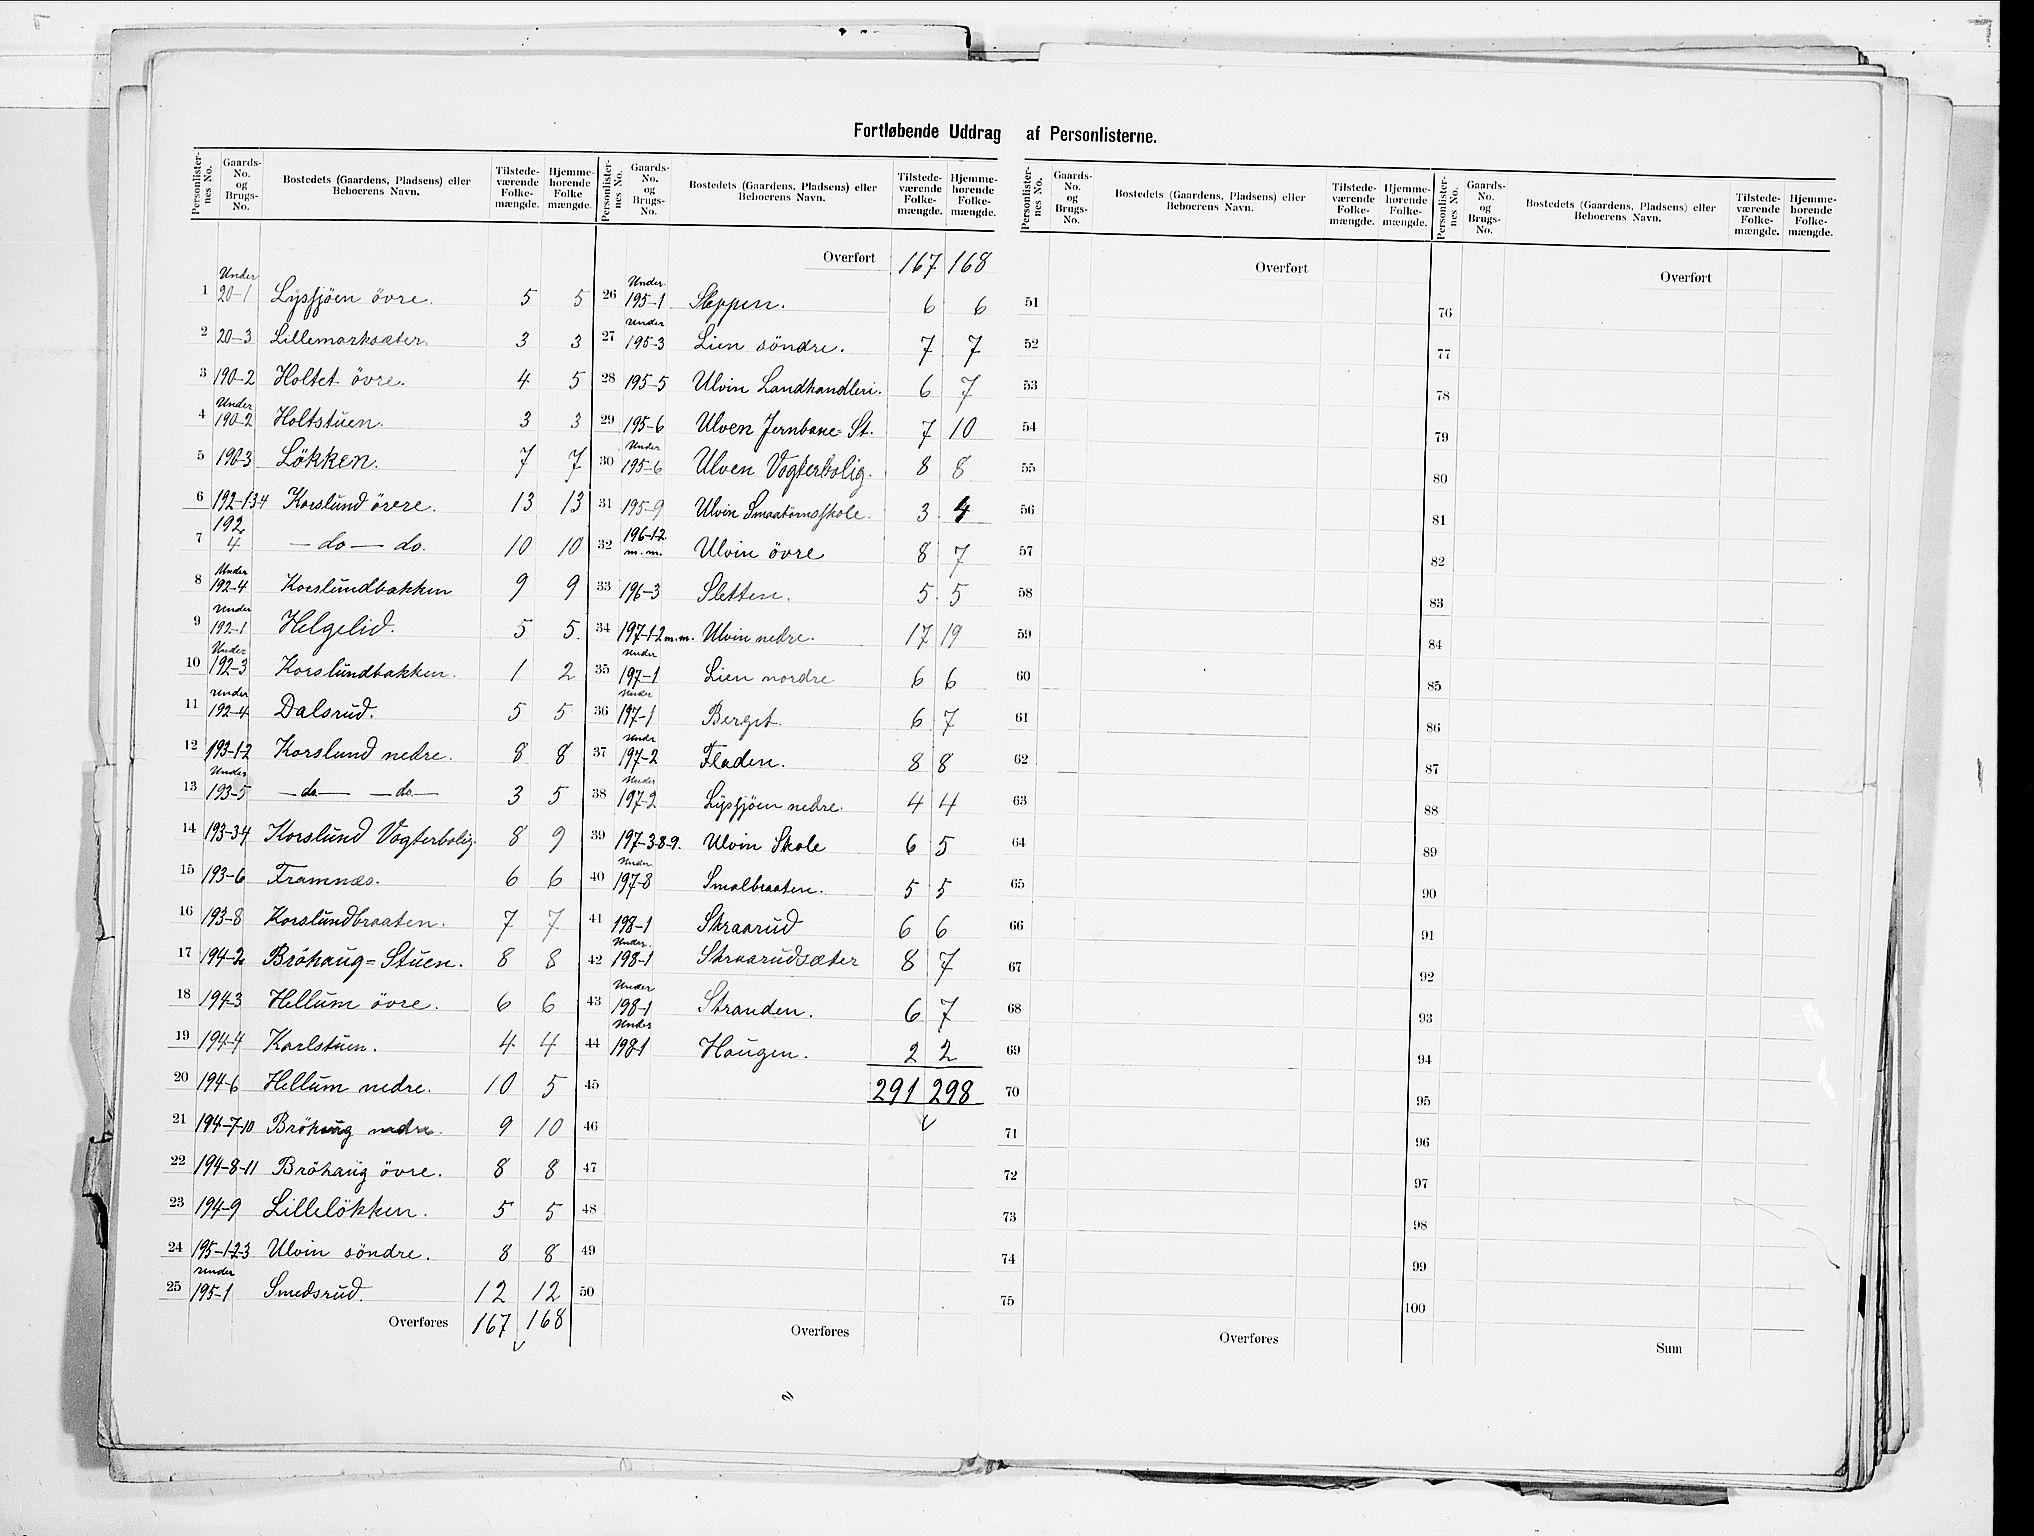 Fortløbende Uddrag af Personlisterne.
Personlister-nes No. Gaards-No. og Brugs-No. Bostedets (Gaardens, Pladsens) eller Beboerens Navn. Tilstede-værende Folke-mængde. Hjemme-hørende Folke mængde. Personlister-nes No. Gaards-No. og Brugs-No. Bostedets (Gaardens, Pladsens) eller Beboerens Navn. Tilstede-værende Folke-mængde. Hjemme-hørende Folke-mængde.
Personlister-nes No. Gaards-No. og Brugs-No. Bostedets (Gaardens, Pladsens) eller Beboerens Navn. Tilstede-værende Folke-mængde. Hjemme-hørende Folke-mængde. Personlister-nes No. Gaards-No. og Brugs-No. Bostedets (Gaardens, Pladsens) eller Beboerens Navn. Tilstede-værende Folke-mængde. Hjemme-hørende Folke-mængde.
1 Under 20-1 Lysfjöen övre. 5 5
2 20-3 Lillemorksæter. 3 3
3 190-2 Holtet övre. 4 5
4 Under 190-2 Holtstuen. 3 3
5 190-3 Lökken. 7 7
6 192-1-3-4 Korslund övre. 13 13
7 192 4 — do — do. 10 10
8 Under 192-4 Korslundbakken 9 9
9 Under 192-1 Helgelid. 5 5.
10 Under 192-3 Korslundbakken. 1 2
11 Under 192-4 Dalsrud. 5 5
12 193-1-2 Korslund nedre. 8 8
13 Under 193-5 — do — — do — 3 5
14 193-3-4 Korslund Vogterbolig. 8 9
15 193-6 Framnæs. 6 6
16 193-8 Korslundbraaten. 7 7
17 194-2 Bröhaug=Stuen. 8 8
18 194-3 Hellum övre. 6 6
19 194-4 Karlstuen. 4 4
20 194-6 Hellum nedre. 10 5
21 194-7-10 Bröhaug nedre. 9 10
22 194-8-11 Bröhaug övre. 8 8
23 194-9 Lillelökken. 5 5
24 195-1-2-3 Ulvin söndre. 8 8
25 Under 195-1 Smedsrud. 12 12
Overføres 167 168
Overført 167 168
26 Under 195-1 Steppen. 6 6
27 Under 195-3 Lien söndre. 7 7
28 195-5 Ulvin Landhandleri. 6 7
29 195-6 Ulven Jernbane=St. 7 10
30 Under 195-6 Ulven Vogterbolig. 8 8
31 195-9 Ulvin Smaabörnsskole. 3 4
32 196-1-2 m.m. Ulvin övre 8 7
33 196-3 Sletten. 5 5
34 197-1-2 m.m. Ulvin nedre. 17 19
35 Under 197-1 Lien nordre 6 6
36 Under 197-1 Berget. 6 7
37 Under 197-2 Fladen. 8 8
38 Under 197-2 Lysfjöen nedre. 4 4
39 197-3-8-9. Ulvin Skole 6 5
40 Under 197-8 Smalbraaten. 5 5
41 198-1 Skraarud 6 6
42 Under. 198-1 Skraarudsæter 8 7
43 Under 198-1 Stranden. 6 7
44 Under 198-1 Haugen. 2 2
45 291 298
46
47
48
49
50
Overføres
Overført
51
52
53
54
55
56
57
58
59
60
61
62
63
64
65
66
67
68
69
70
71
72
73
74
75
Overføres
Overført
76
77
78
79
80
81
82
83
84
85
86
87
88
89
90
91
92
93
94
95
96
97
98
99
100
Sum